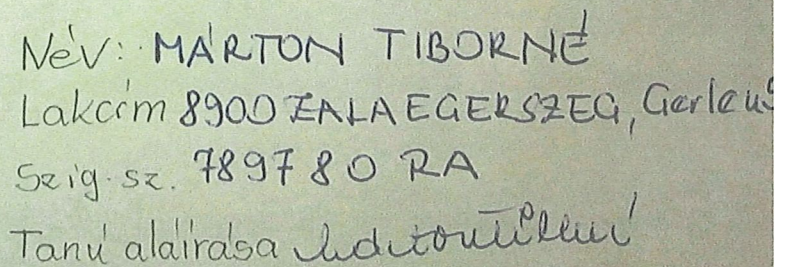 Név: MÁRTON TIBORNÉ
Lakcím 8900 ZALAEGERSZEG,
Szig. sz. 789780 RA
Tanú aláírása